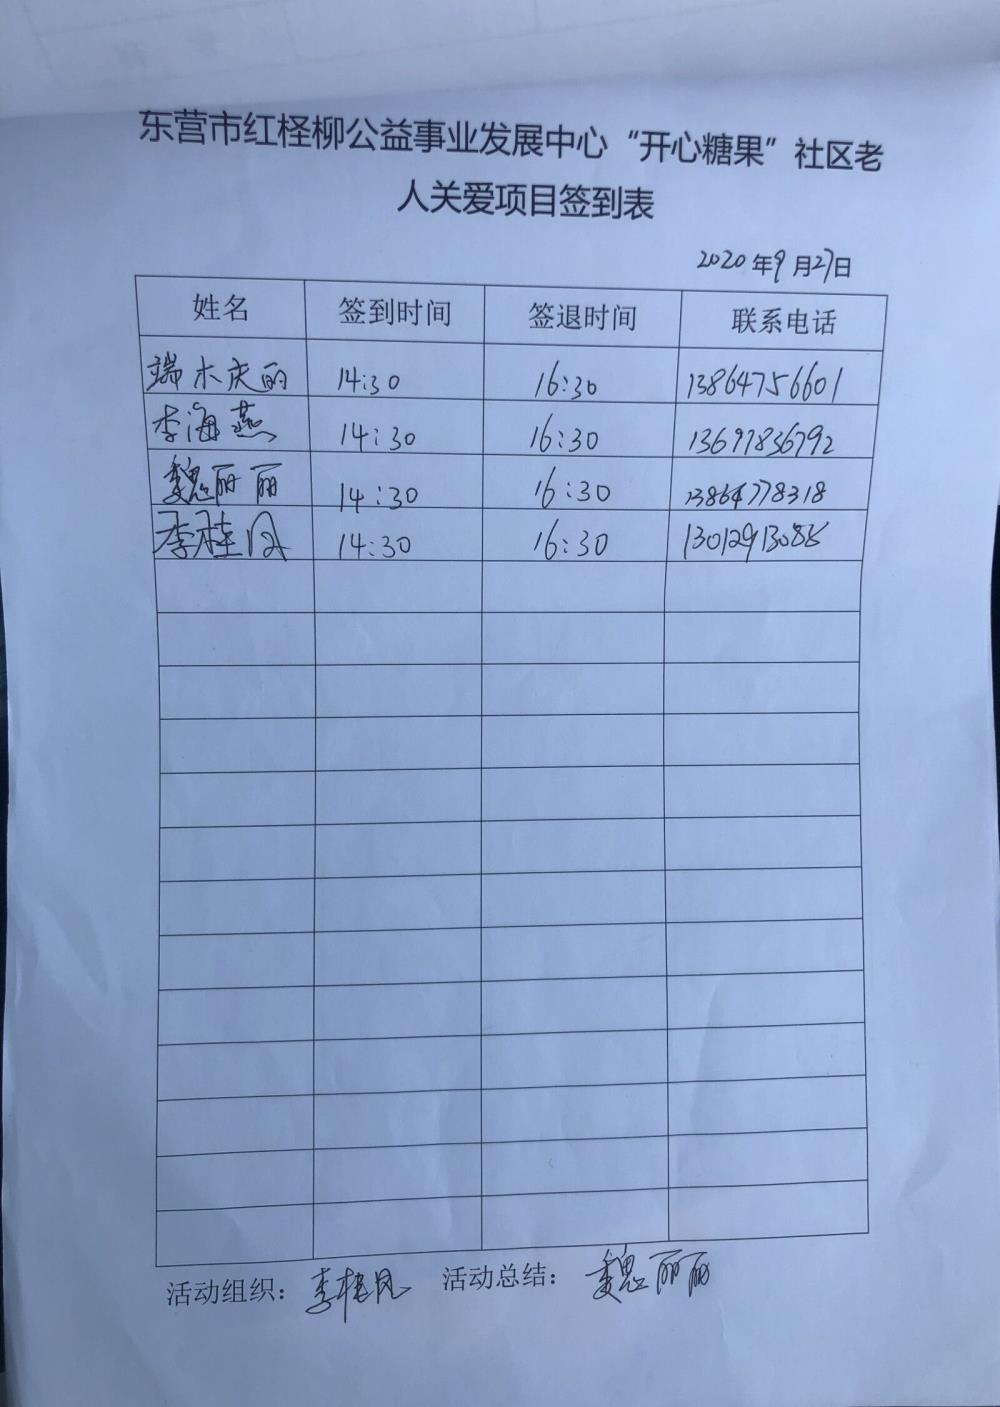 东营市红柽柳公益事业发展中心“开心糖果”社区老
人关爱项目签到表
2020年9月27日
姓名 签到时间 签退时间 联系电话
端木庆丽 14:30 16:30 13864756601
李海燕 14:30 16:30 13697836792
魏丽丽 14:30 16:30 13864778318
李桂凤 14:30 16:30
活动组织：李桂凤 活动总结：魏丽丽